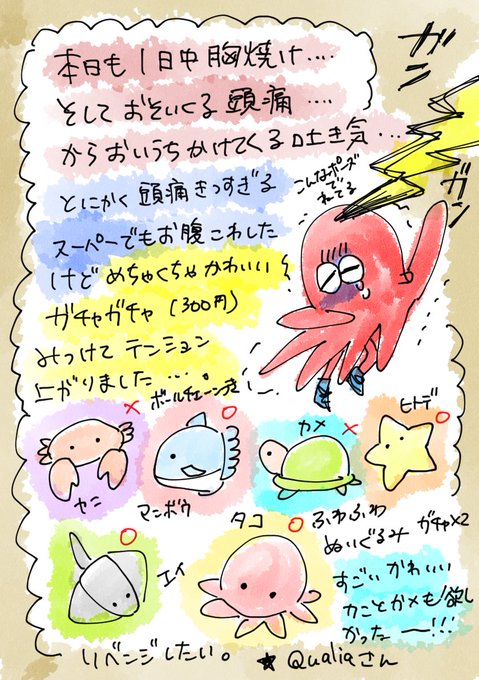 本日も1日中胸焼け....
そしておそいくる頭痛....
からおいうちかけてくる吐き気...
とにかく頭痛きつすぎる
スーパーでもお腹こわした
けどめちゃくちゃかわいい
ガチャガチャ(300円)
みつけてテンション
上がりました....
ガン
ガン
こんなポーズ
で
ねてる
ボールチェーン
カニ
マンボウ
カメ
ヒトデ
エイ
タコ
ふわふわ
ぬいぐるみ ガチャ×2
すごいかわいい
カニとカメも欲し
かったー!!!
リベンジしたい。
★Qualiaさん